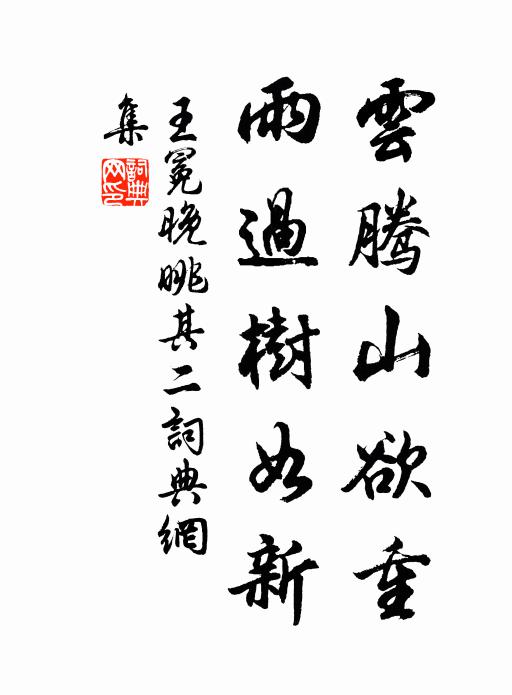 雲騰山欲重
雨過樹如新
王冕晚眺其二詞典網
集
詞典网印